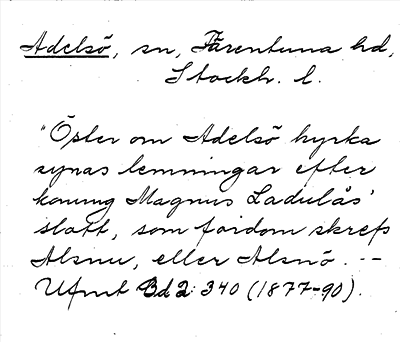 Adelsö, sn, Färentuna hd,
Stockh. l.
"Öster om Adelsö kyrka
synas lemningar efter
konung Magnus Ladulås'
slott, som fordom skrefs
Alsnu, eller Alsnö. --
Ufmt Bd 2: 340 (1877-90).